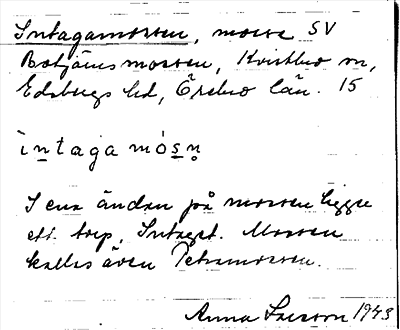 Intagamossen, mosse SV
Botjärnsmossen, Kvistbro sn,
Edsbergs hd, Örebro län. 15
ìntagamósn
I ena ändan på mossen ligger
ett torp, Intaget. Mossen
kallas även Petramossen.
Anna Larsson 1943